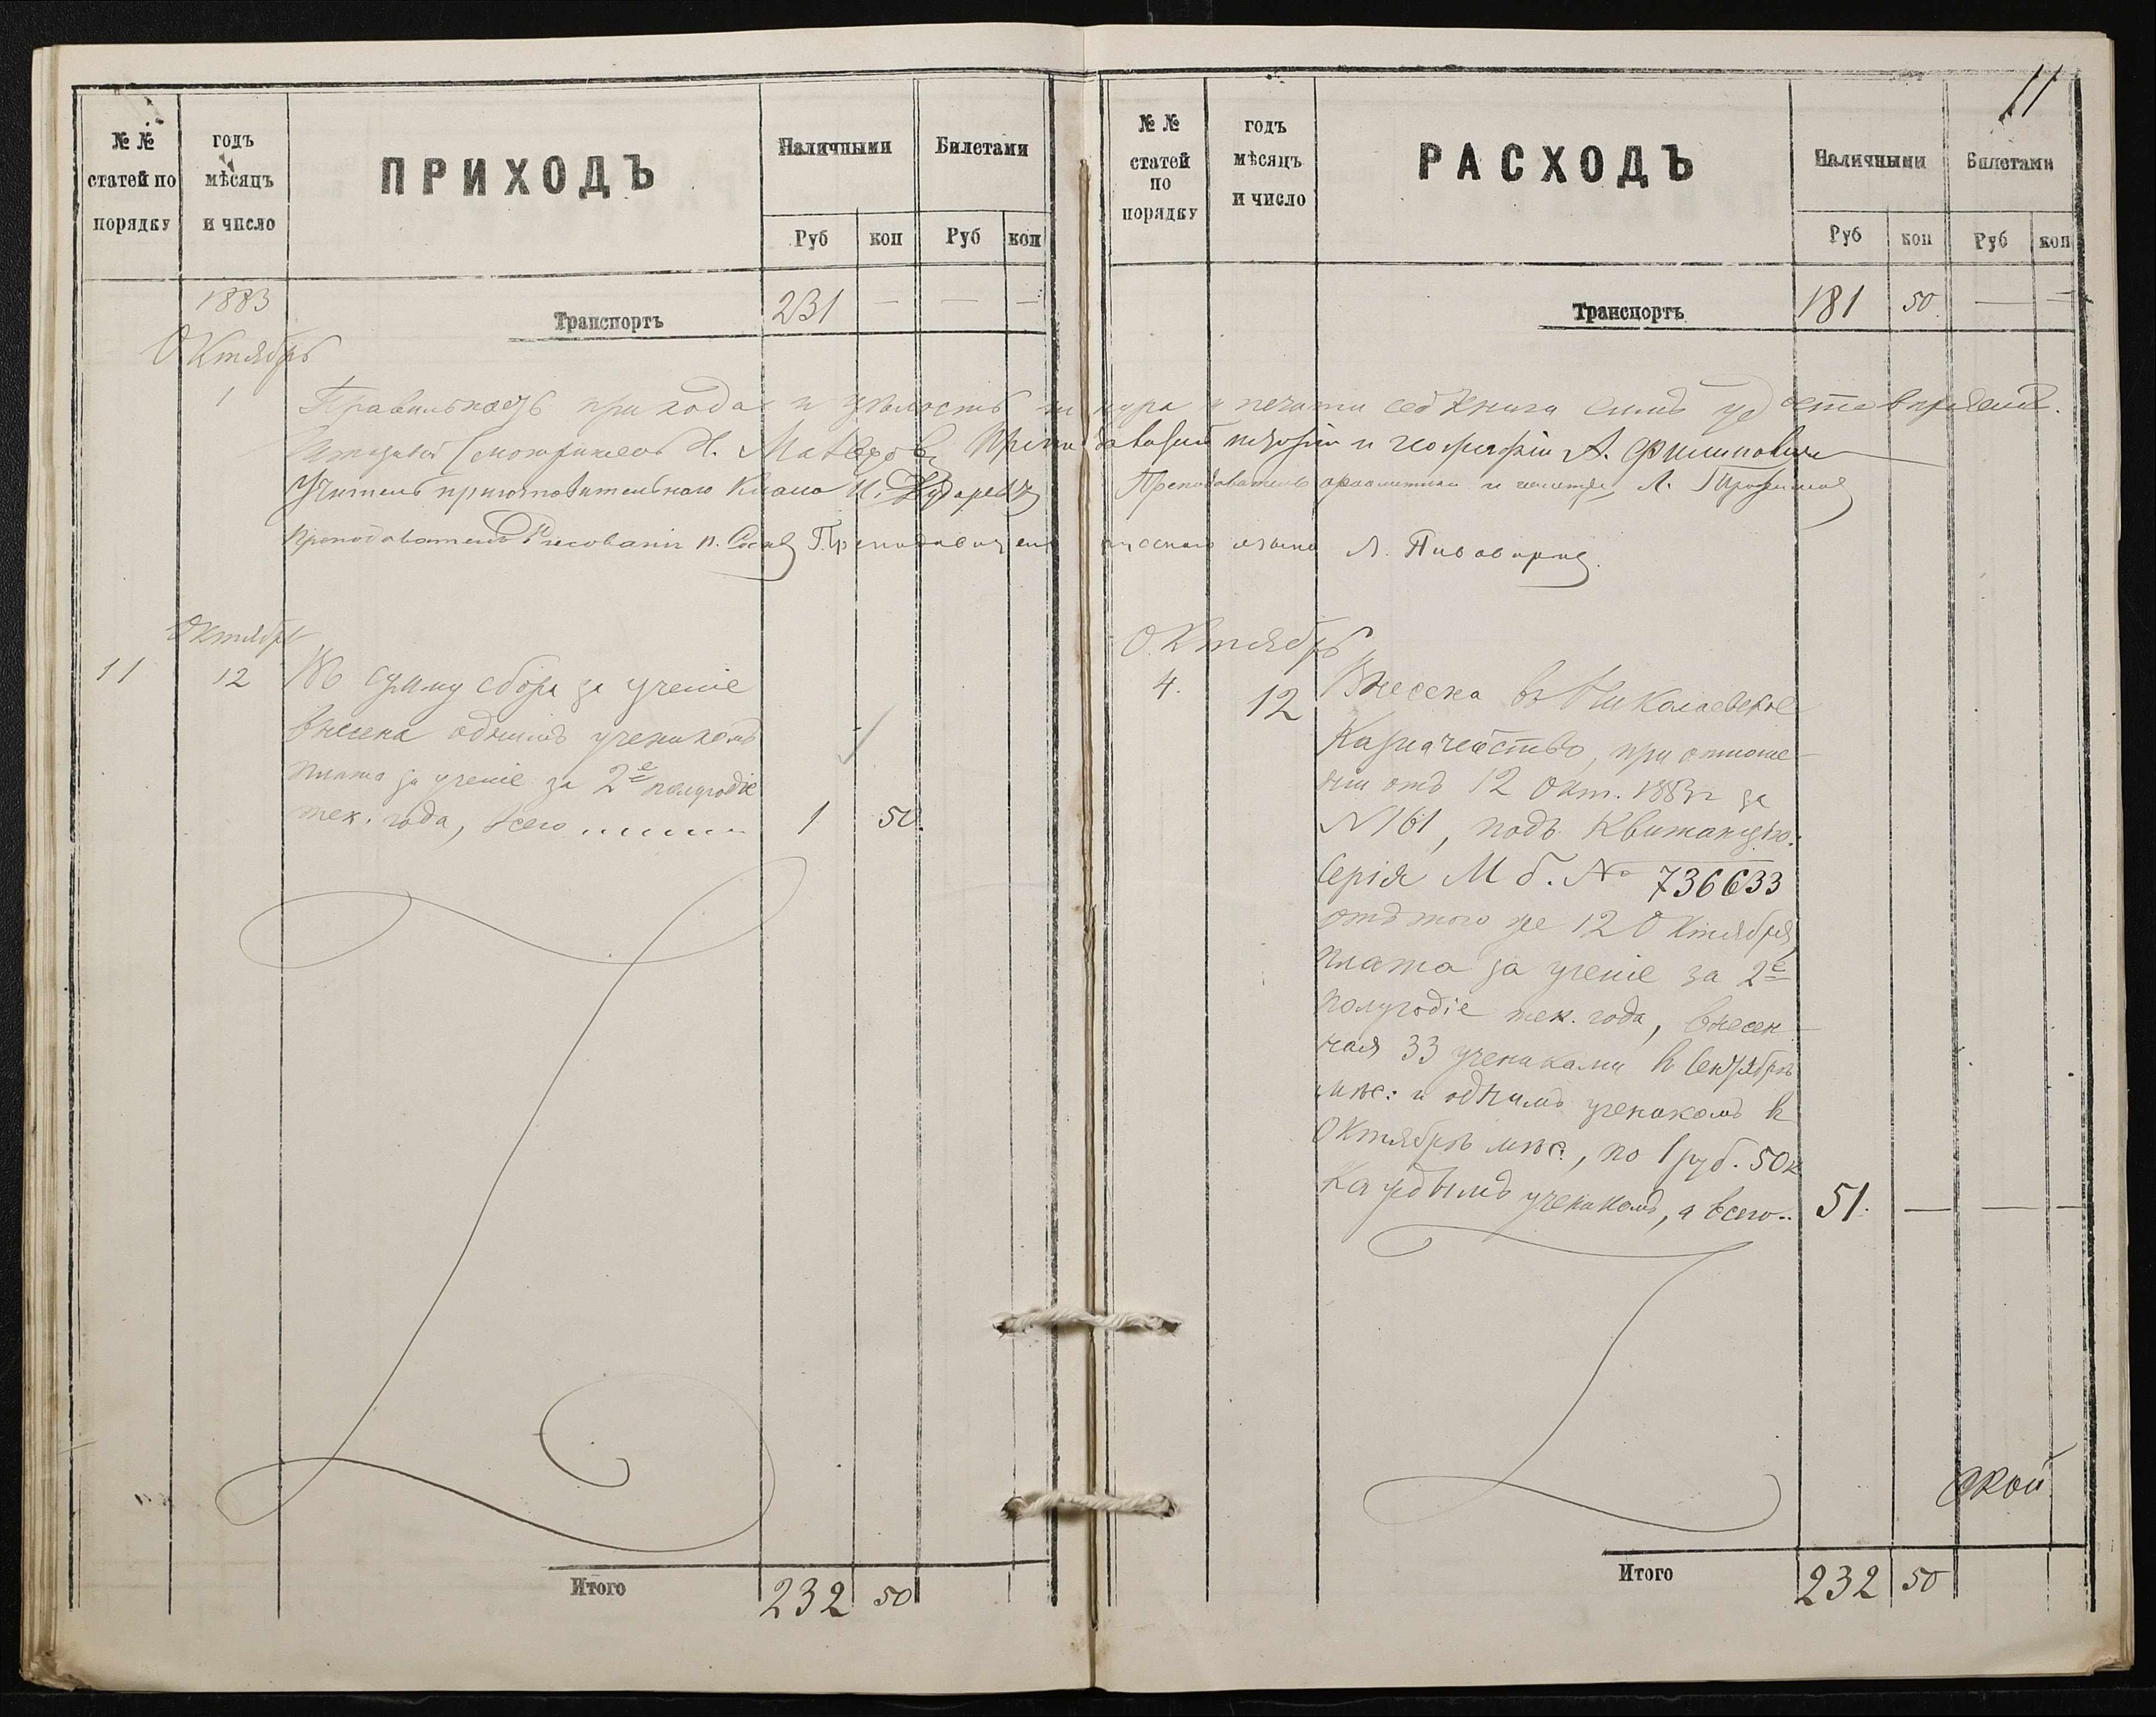 11
№ №
статей по
порядку
годъ
мѣсяцъ
и число
ПРИХОДЪ
Наличными
Билетами
Руб
коп
Руб
коп
1883
Транспортъ
231 — — —
Октябрь
1
Правильность прихода и цѣлость шнура и печати сей книги симъ удостовѣряемъ.
Штатный Смотритель Н. Преподаватель исторіи и географіи А. Филиповичъ
Учитель приготовительнаго класса И. Преподаватель ариѳметики и Л.
Преподаватель Рисованія П. Преподаватель русскаго языка Л. Пивоваровъ.
Октябрь
11 12 Въ сумму сбора за ученіе
внесена однимъ ученикомъ
плата за ученіе за 2е полугодіе
тек. года, всего 1 50.
Итого 232 50
№ №
статей
по
порядку
годъ
мѣсяцъ
и число
РАСХОДЪ
Наличными
Билетами
Руб
коп
Руб
коп
Транспортъ
181 50. — —
Октябрь
4. 12 Внесена въ Николаевское
Казначейство, при отноше-
ніи отъ 12 Окт. 1883 г за
№ 161, подъ квитанцію:
Серія М б. № 736633
отъ того же 12 Октября,
плата за ученіе за 2е
полугодіе тек. года, внесен-
ная 33 учениками въ Сентябрѣ
мѣс: и однимъ ученикомъ въ
Октябрѣ мѣс., по 1 руб. 50 к
каждымъ ученикомъ, а всего.. 51. — — —
ской
Итого 232 50